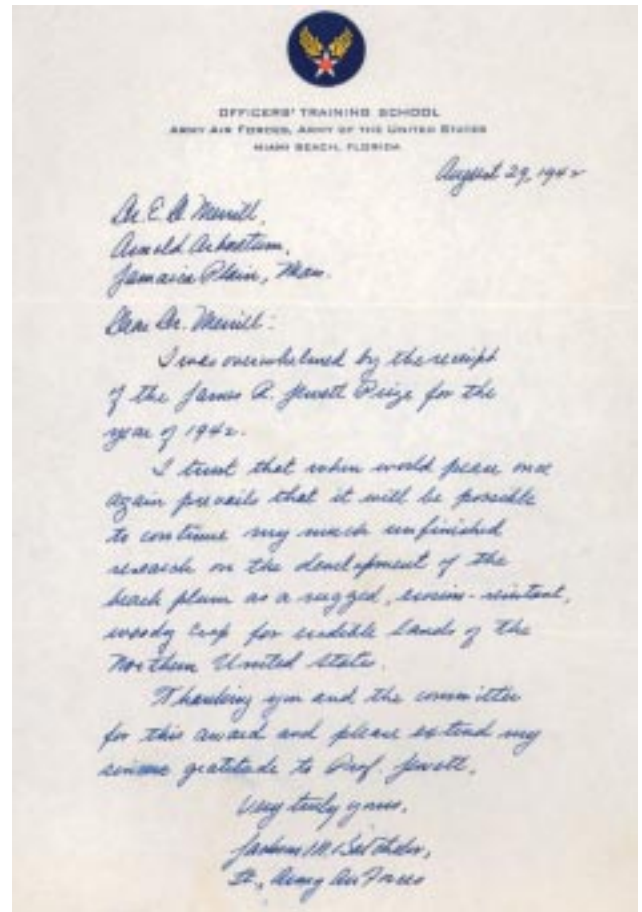 OFFICERS' TRAINING SCHOOL
ARMY AIR FORCES, ARMY OF THE UNITED STATES
MIAMI BEACH, FLORIDA
August 29, 1942
Dr. E. D. Merrill,
Arnold Arboretum,
Jamaica Plain, Mass.
Dear Dr. Merrill:
I was overwhelmed by the receipt
of the James R. Jewett Prize for the
year of 1942.
I trust that when world peace once
again prevails that it will be possible
to continue my much unfinished
research on the development of the
beach plum as a rugged, erosion-resistant,
woody crop for erodible lands of the
Northern United States.
Thanking you and the committee
for this award and please extend my
sincere gratitude to Prof. Jewett,
Very truly yours,
Batchelor,
Lt., Army Air Forces